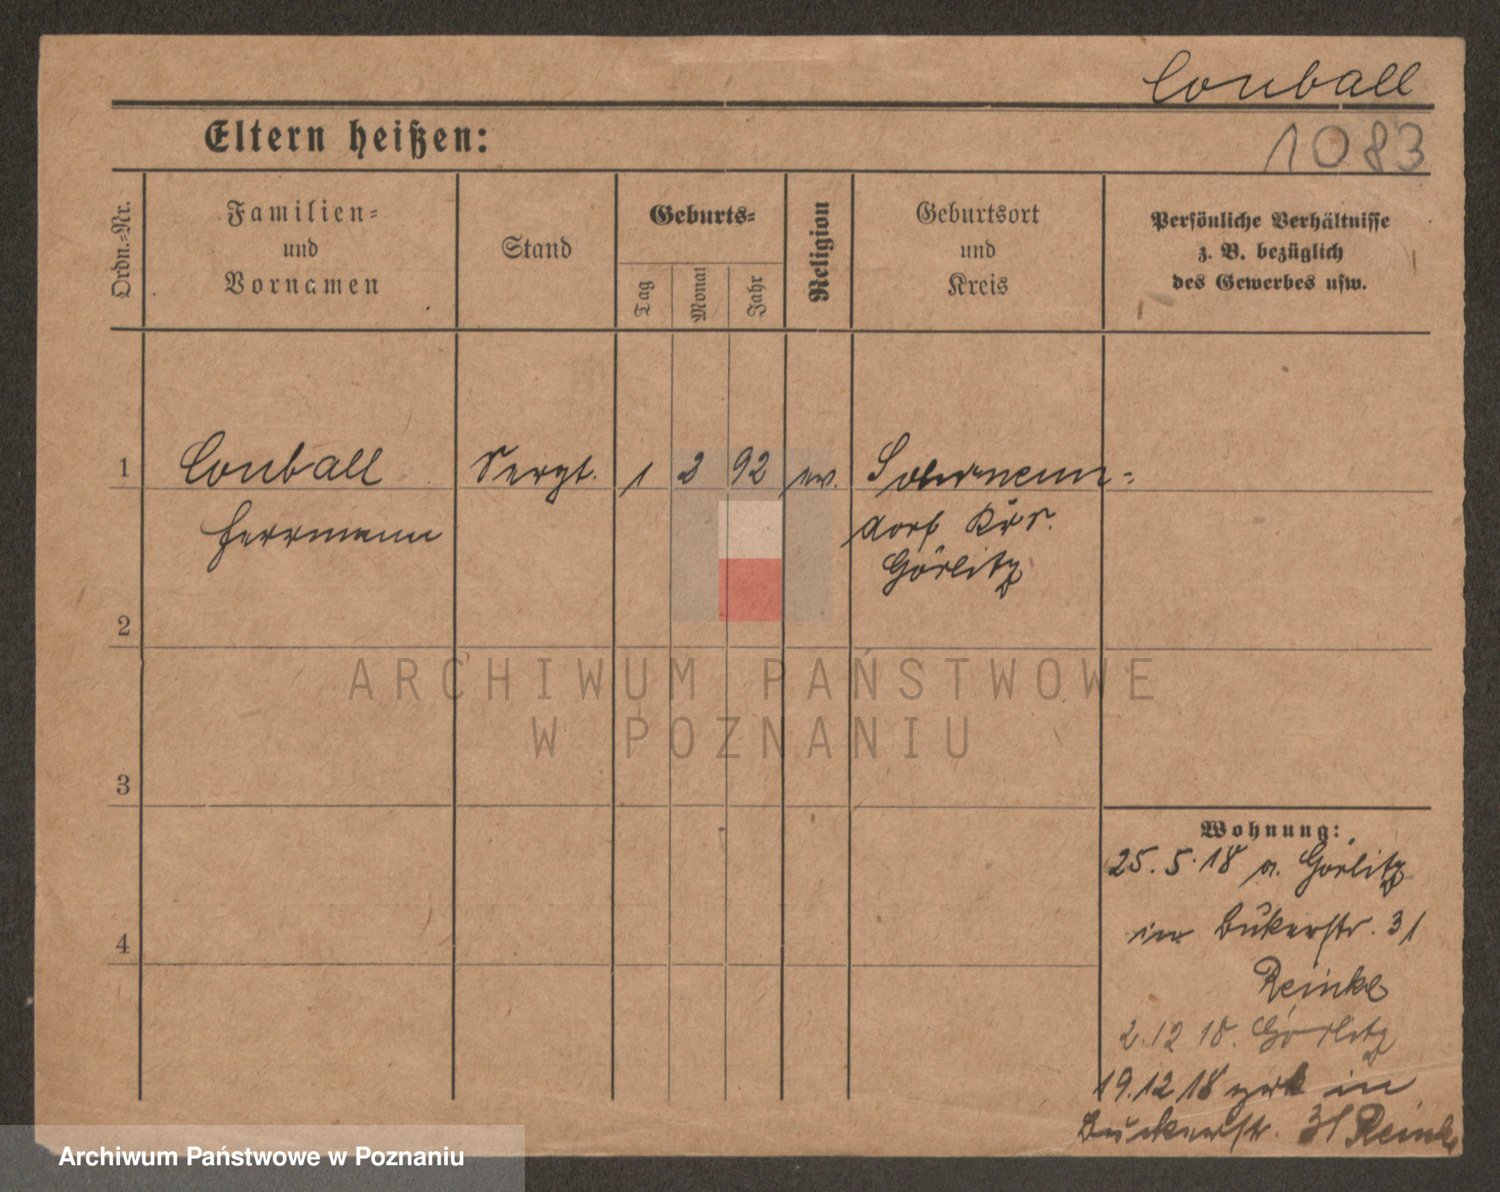 Conball
Eltern heißen:
1083
Ordn.-Nr.
Familien-
und
Vornamen
Stand
Geburts-
Tag
Monat
Jahr
Religion
Geburtsort
und
Kreis
Persönliche Verhältnisse
z. B. bezüglich
des Gewerbes usw.
1
Conball
Sergt.
1
2
92
ev.
Herrmann
dorf Krs.
Görlitz
2
3
4
ARCHIWUM PAŃSTWOWE
W POZNANIU
Wohnung:
25.5.18 a. Görlitz
in Bukerstr. 31
Reinke
2.12 18. Görlitz
19.12 18 zrk in
Buckerstr. 31 Reinke
Archiwum Państwowe w Poznaniu